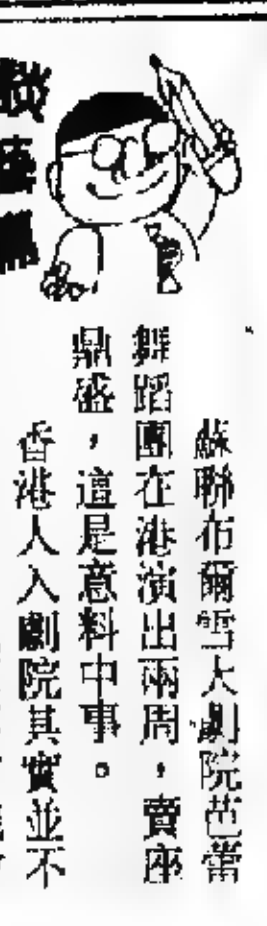 蘇聯布爾雪大劇院芭蕾
舞蹈團在港演出兩周，賣座
鼎盛，這是意料中事。
香港人入劇院其實並不